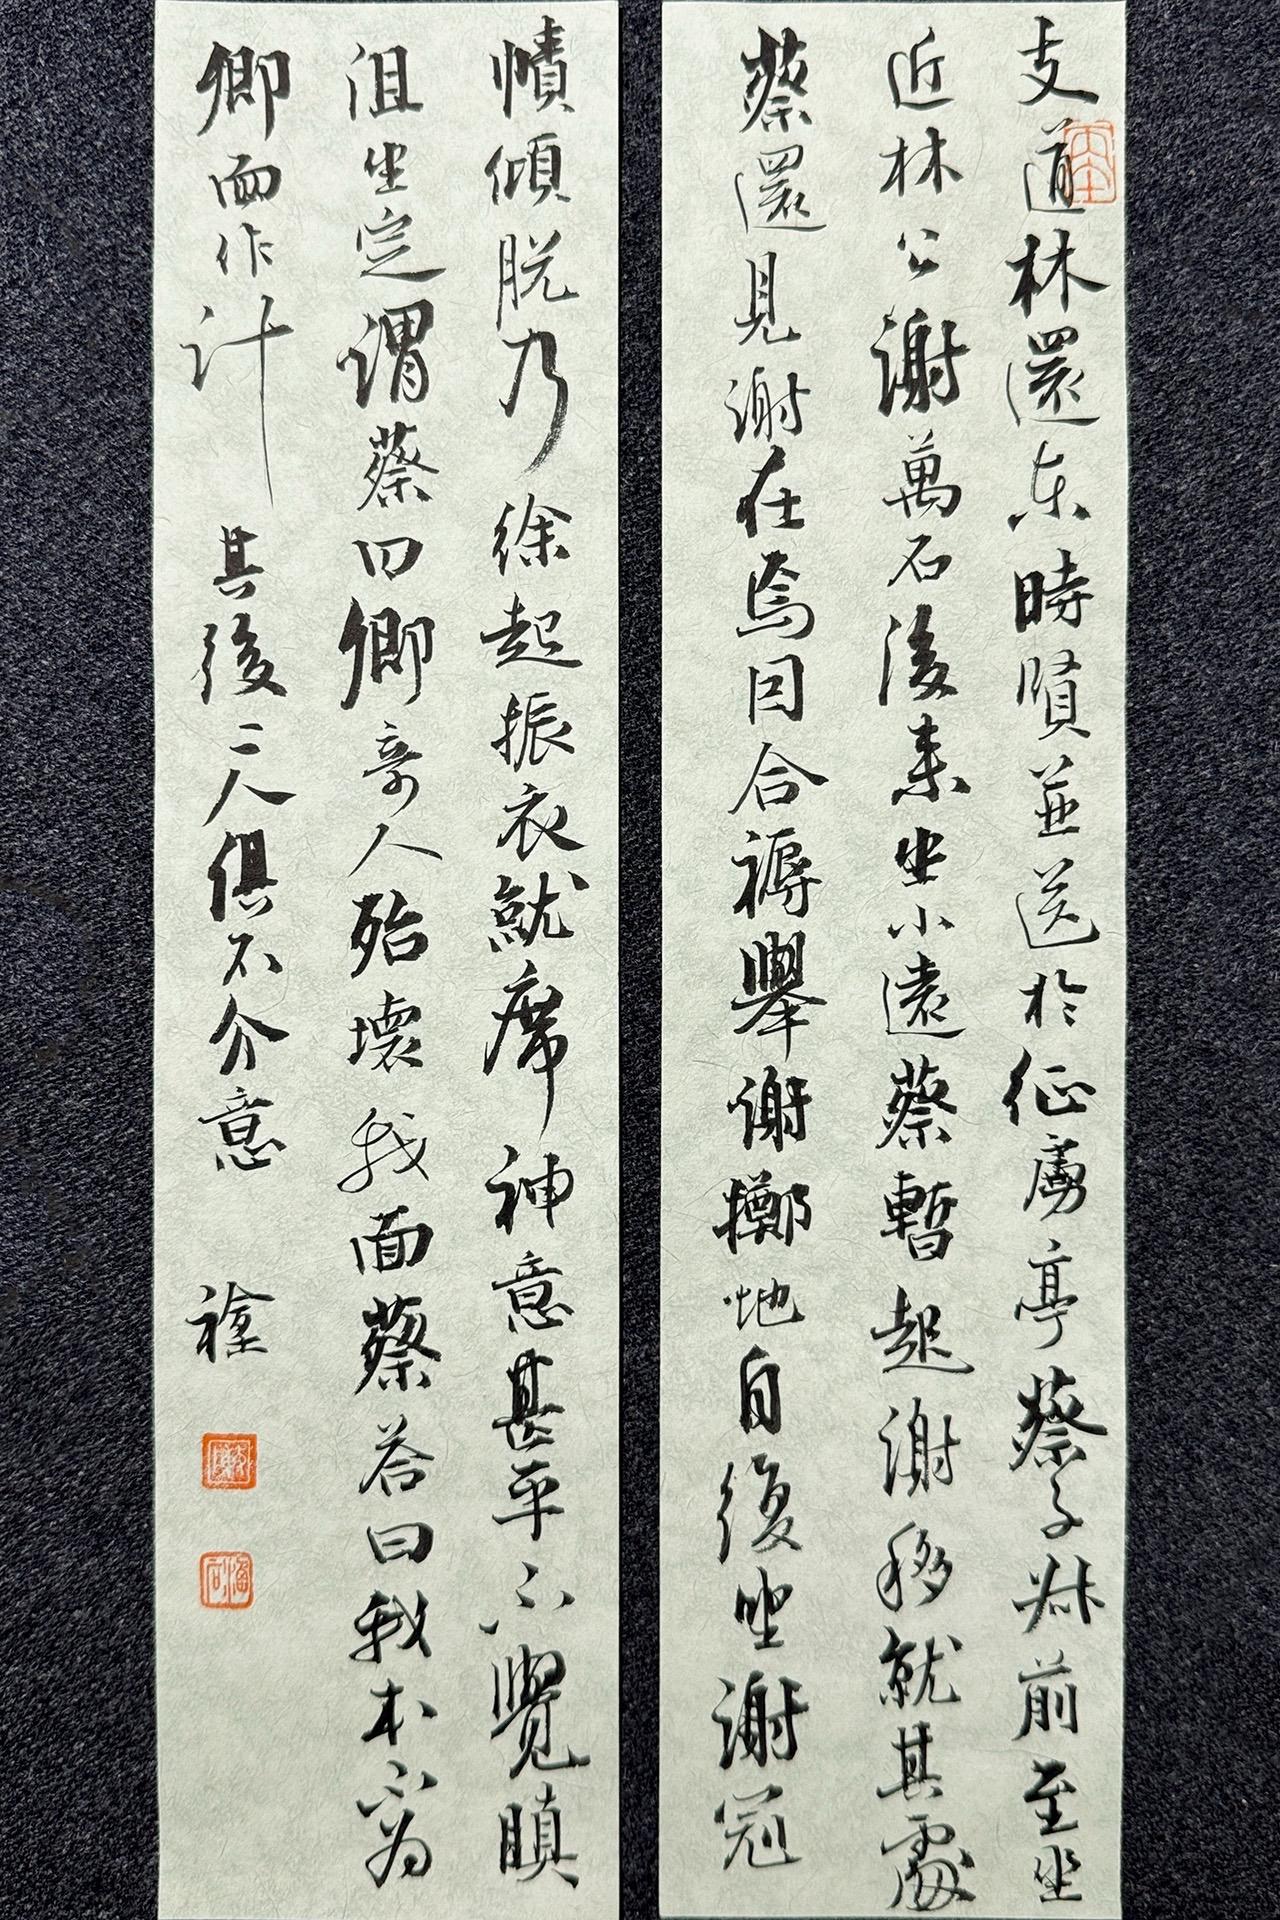 支道林還東時賢並送於征虜亭蔡子叔前至坐
近林公謝萬石後來坐小遠蔡暫起謝移就其處
蔡還見謝在焉因合褥舉謝擲地自復坐謝冠
幘傾脱乃徐起振衣就席神意甚平不覺瞋
沮坐定謂蔡曰卿奇人殆壞我面蔡答曰我本不為
卿面作計 其後二人俱不介意